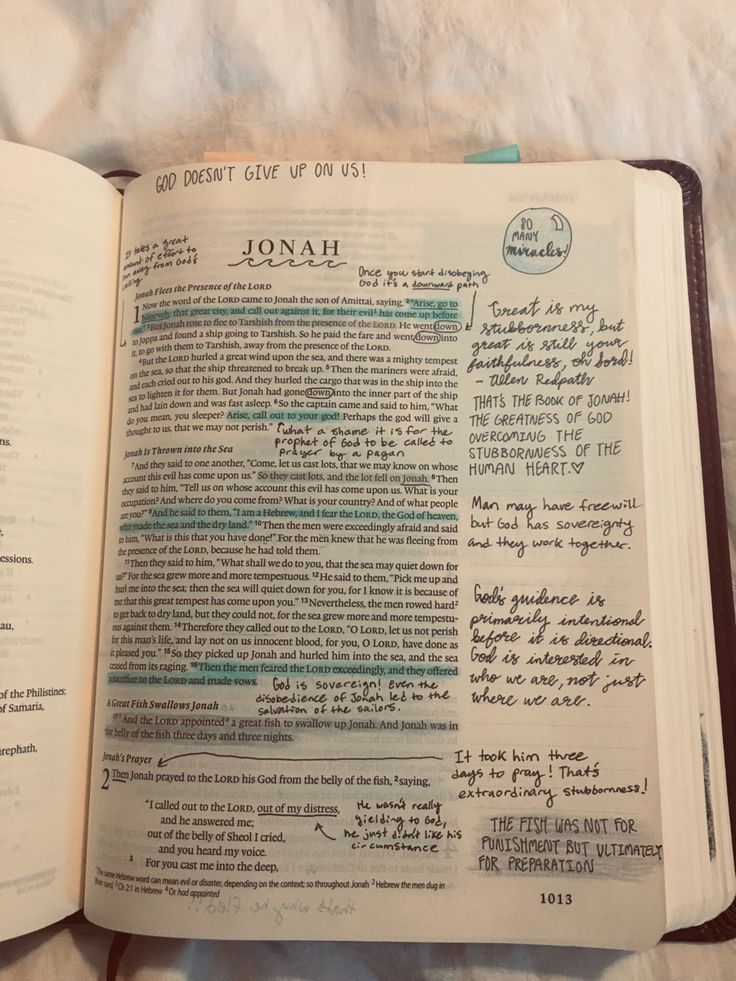 GOD DOESN'T GIVE UP ON US!
It takes a great
amount of effort to
run away from God's
calling.
JONAH
SO
MANY
miracles!
Once you start disobeying
God it's a downward path
Jonah Flees the Presence of the LORD
1 Now the word of the LORD came to Jonah the son of Amittai, saying, 2 "Arise, go to
Nineveh, that great city, and call out against it, for their evil1 has come up before
me." 3 But Jonah rose to flee to Tarshish from the presence of the LORD. He went down
to Joppa and found a ship going to Tarshish. So he paid the fare and went down into
it, to go with them to Tarshish, away from the presence of the LORD.
4 But the LORD hurled a great wind upon the sea, and there was a mighty tempest
on the sea, so that the ship threatened to break up. 5 Then the mariners were afraid,
and each cried out to his god. And they hurled the cargo that was in the ship into the
sea to lighten it for them. But Jonah had gone down into the inner part of the ship
and had lain down and was fast asleep. 6 So the captain came and said to him, "What
do you mean, you sleeper? Arise, call out to your god! Perhaps the god will give a
thought to us, that we may not perish."
what a shame it is for the
prophet of God to be called to
prayer by a pagan
Jonah Is Thrown into the Sea
7 And they said to one another, "Come, let us cast lots, that we may know on whose
account this evil has come upon us." So they cast lots, and the lot fell on Jonah. 8 Then
they said to him, "Tell us on whose account this evil has come upon us. What is your
occupation? And where do you come from? What is your country? And of what people
are you?" 9 And he said to them, "I am a Hebrew, and I fear the LORD, the God of heaven,
who made the sea and the dry land." 10 Then the men were exceedingly afraid and said
to him, "What is this that you have done!" For the men knew that he was fleeing from
the presence of the LORD, because he had told them.
11 Then they said to him, "What shall we do to you, that the sea may quiet down for
us?" For the sea grew more and more tempestuous. 12 He said to them, "Pick me up and
hurl me into the sea; then the sea will quiet down for you, for I know it is because of
me that this great tempest has come upon you." 13 Nevertheless, the men rowed hard2
to get back to dry land, but they could not, for the sea grew more and more tempestu-
ous against them. 14 Therefore they called out to the LORD, "O LORD, let us not perish
for this man's life, and lay not on us innocent blood, for you, O LORD, have done as
it pleased you." 15 So they picked up Jonah and hurled him into the sea, and the sea
ceased from its raging. 16 Then the men feared the LORD exceedingly, and they offered
a sacrifice to the LORD and made vows.
God is sovereign! even the
disobedience of Jonah led to the
salvation of the sailors.
A Great Fish Swallows Jonah
17 3 And the LORD appointed4 a great fish to swallow up Jonah. And Jonah was in
the belly of the fish three days and three nights.
Jonah's Prayer
2 Then Jonah prayed to the LORD his God from the belly of the fish, 2 saying,
"I called out to the LORD, out of my distress,
and he answered me;
out of the belly of Sheol I cried,
and you heard my voice.
3 For you cast me into the deep,
He wasn't really
yielding to God,
he just didn't like his
circumstance
1 The same Hebrew word can mean evil or disaster, depending on the context; so throughout Jonah 2 Hebrew the men dug in
[their oars] 3 Ch 2:1 in Hebrew 4 Or had appointed
1013
Great is my
stubbornness, but
great is still your
faithfulness, oh Lord!
- Allen Redpath
THAT'S THE BOOK OF JONAH!
THE GREATNESS OF GOD
OVERCOMING THE
STUBBORNNESS OF THE
HUMAN HEART.♡
Man may have freewill
but God has sovereignty
and they work together.
God's guidance is
primarily intentional
before it is directional.
God is interested in
who we are, not just
where we are.
It took him three
days to pray! That's
extraordinary stubbornness!
THE FISH WAS NOT FOR
PUNISHMENT BUT ULTIMATELY
FOR PREPARATION
ns.
essions.
au,
of the Philistines;
of Samaria,
irephath,